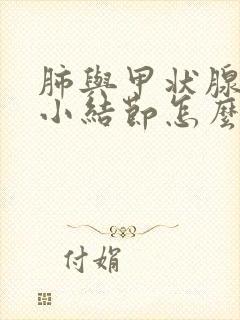 肺與甲状腺
小结節怎麼
付娟